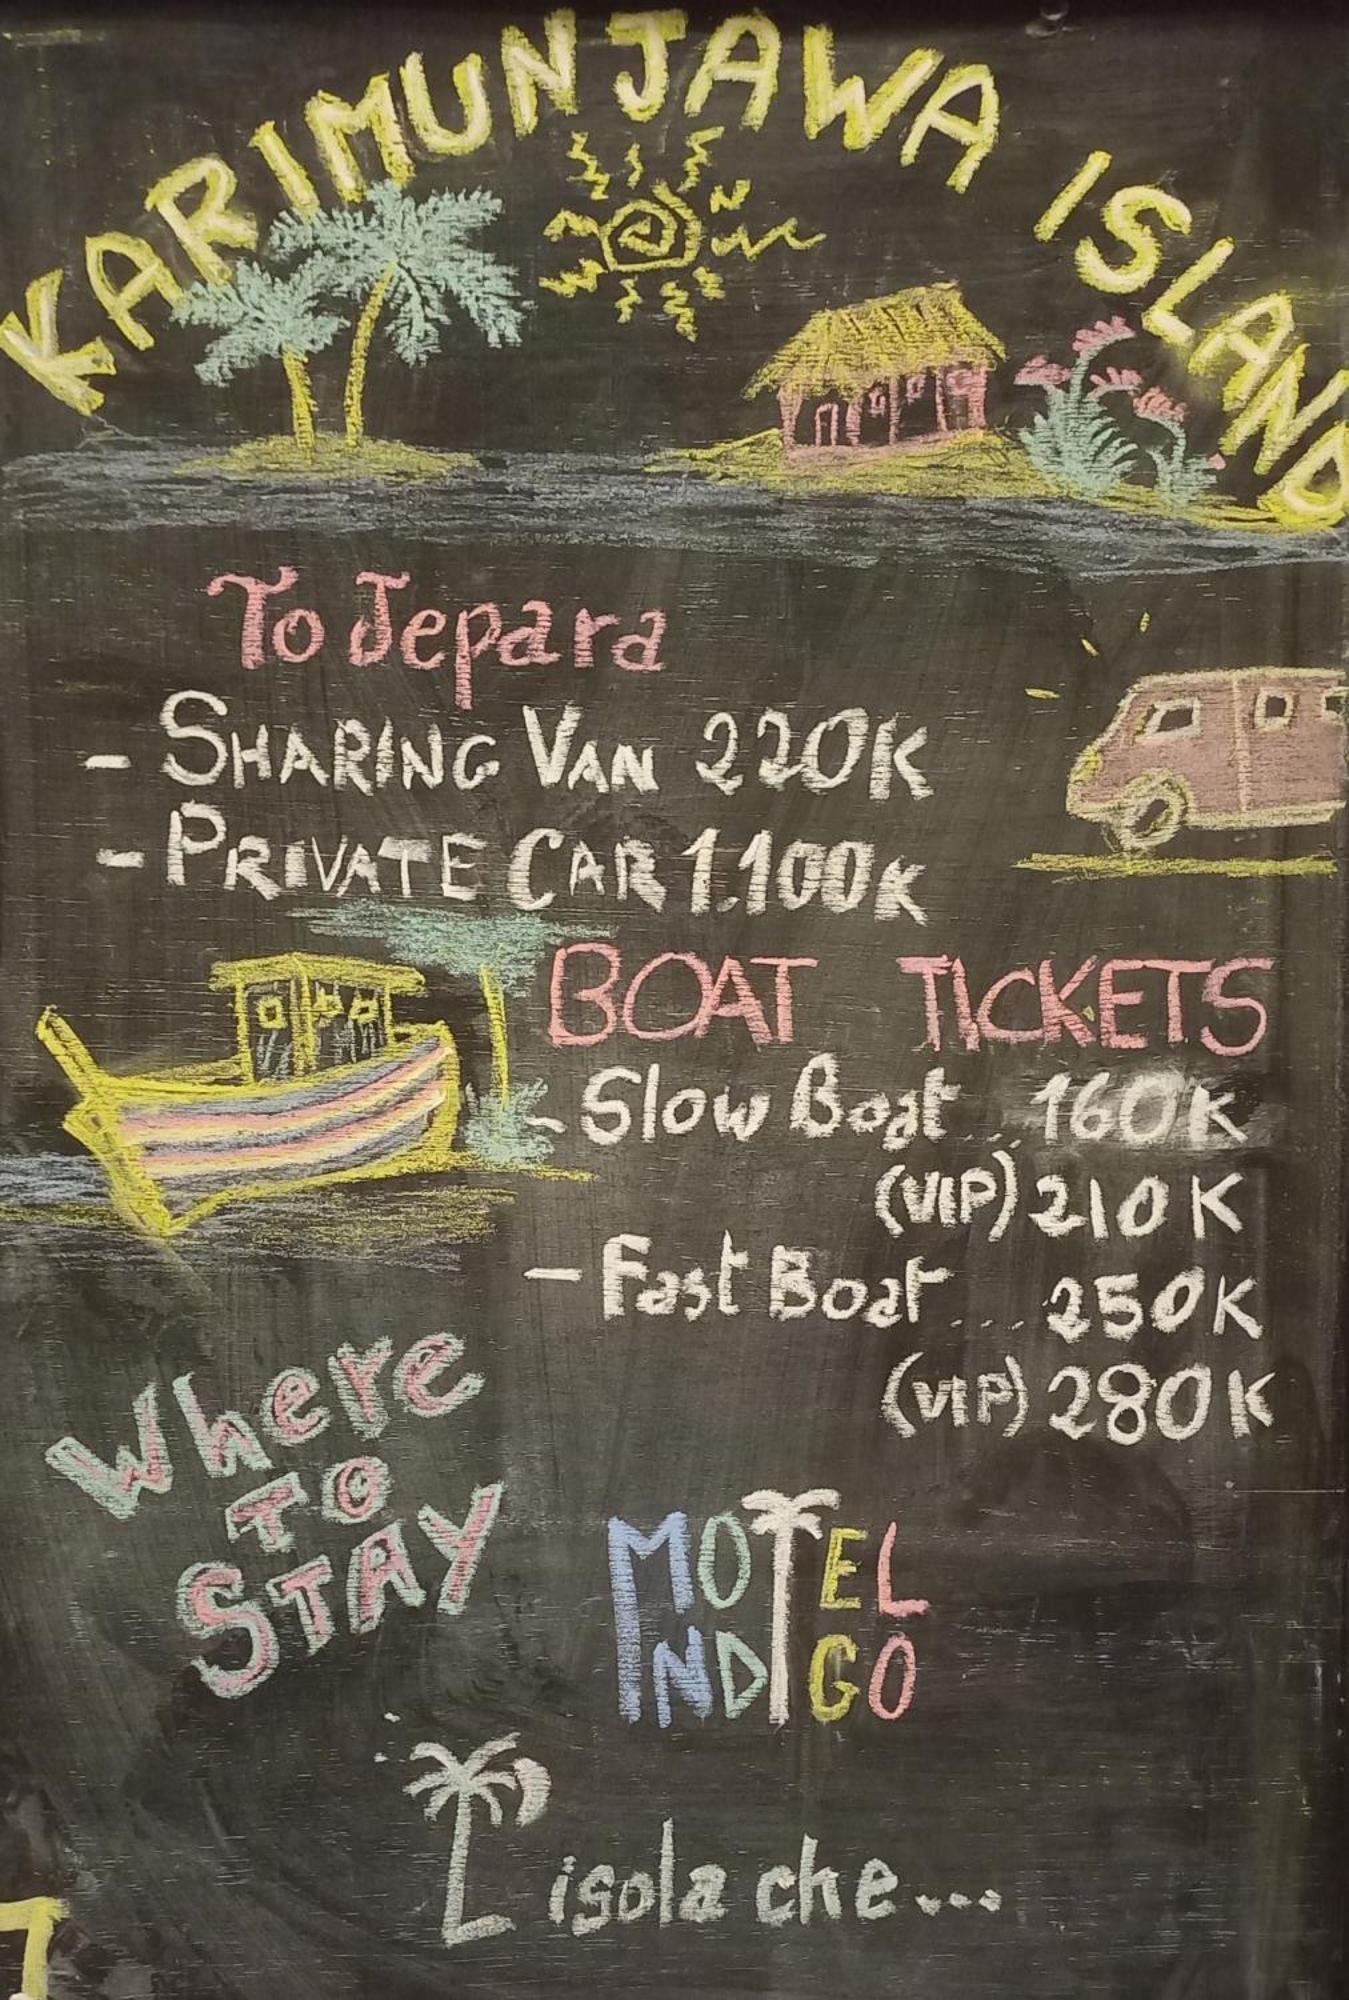 KARIMUNJAWA ISLAND
To Jepara
- SHARING VAN 220K
- PRIVATE CAR 1.100K
BOAT TICKETS
- Slow Boat ... 160K
(VIP) 210K
- Fast Boat .... 250K
(VIP) 280K
Where
TO
STAY
MOTEL
INDIGO
L isola che...